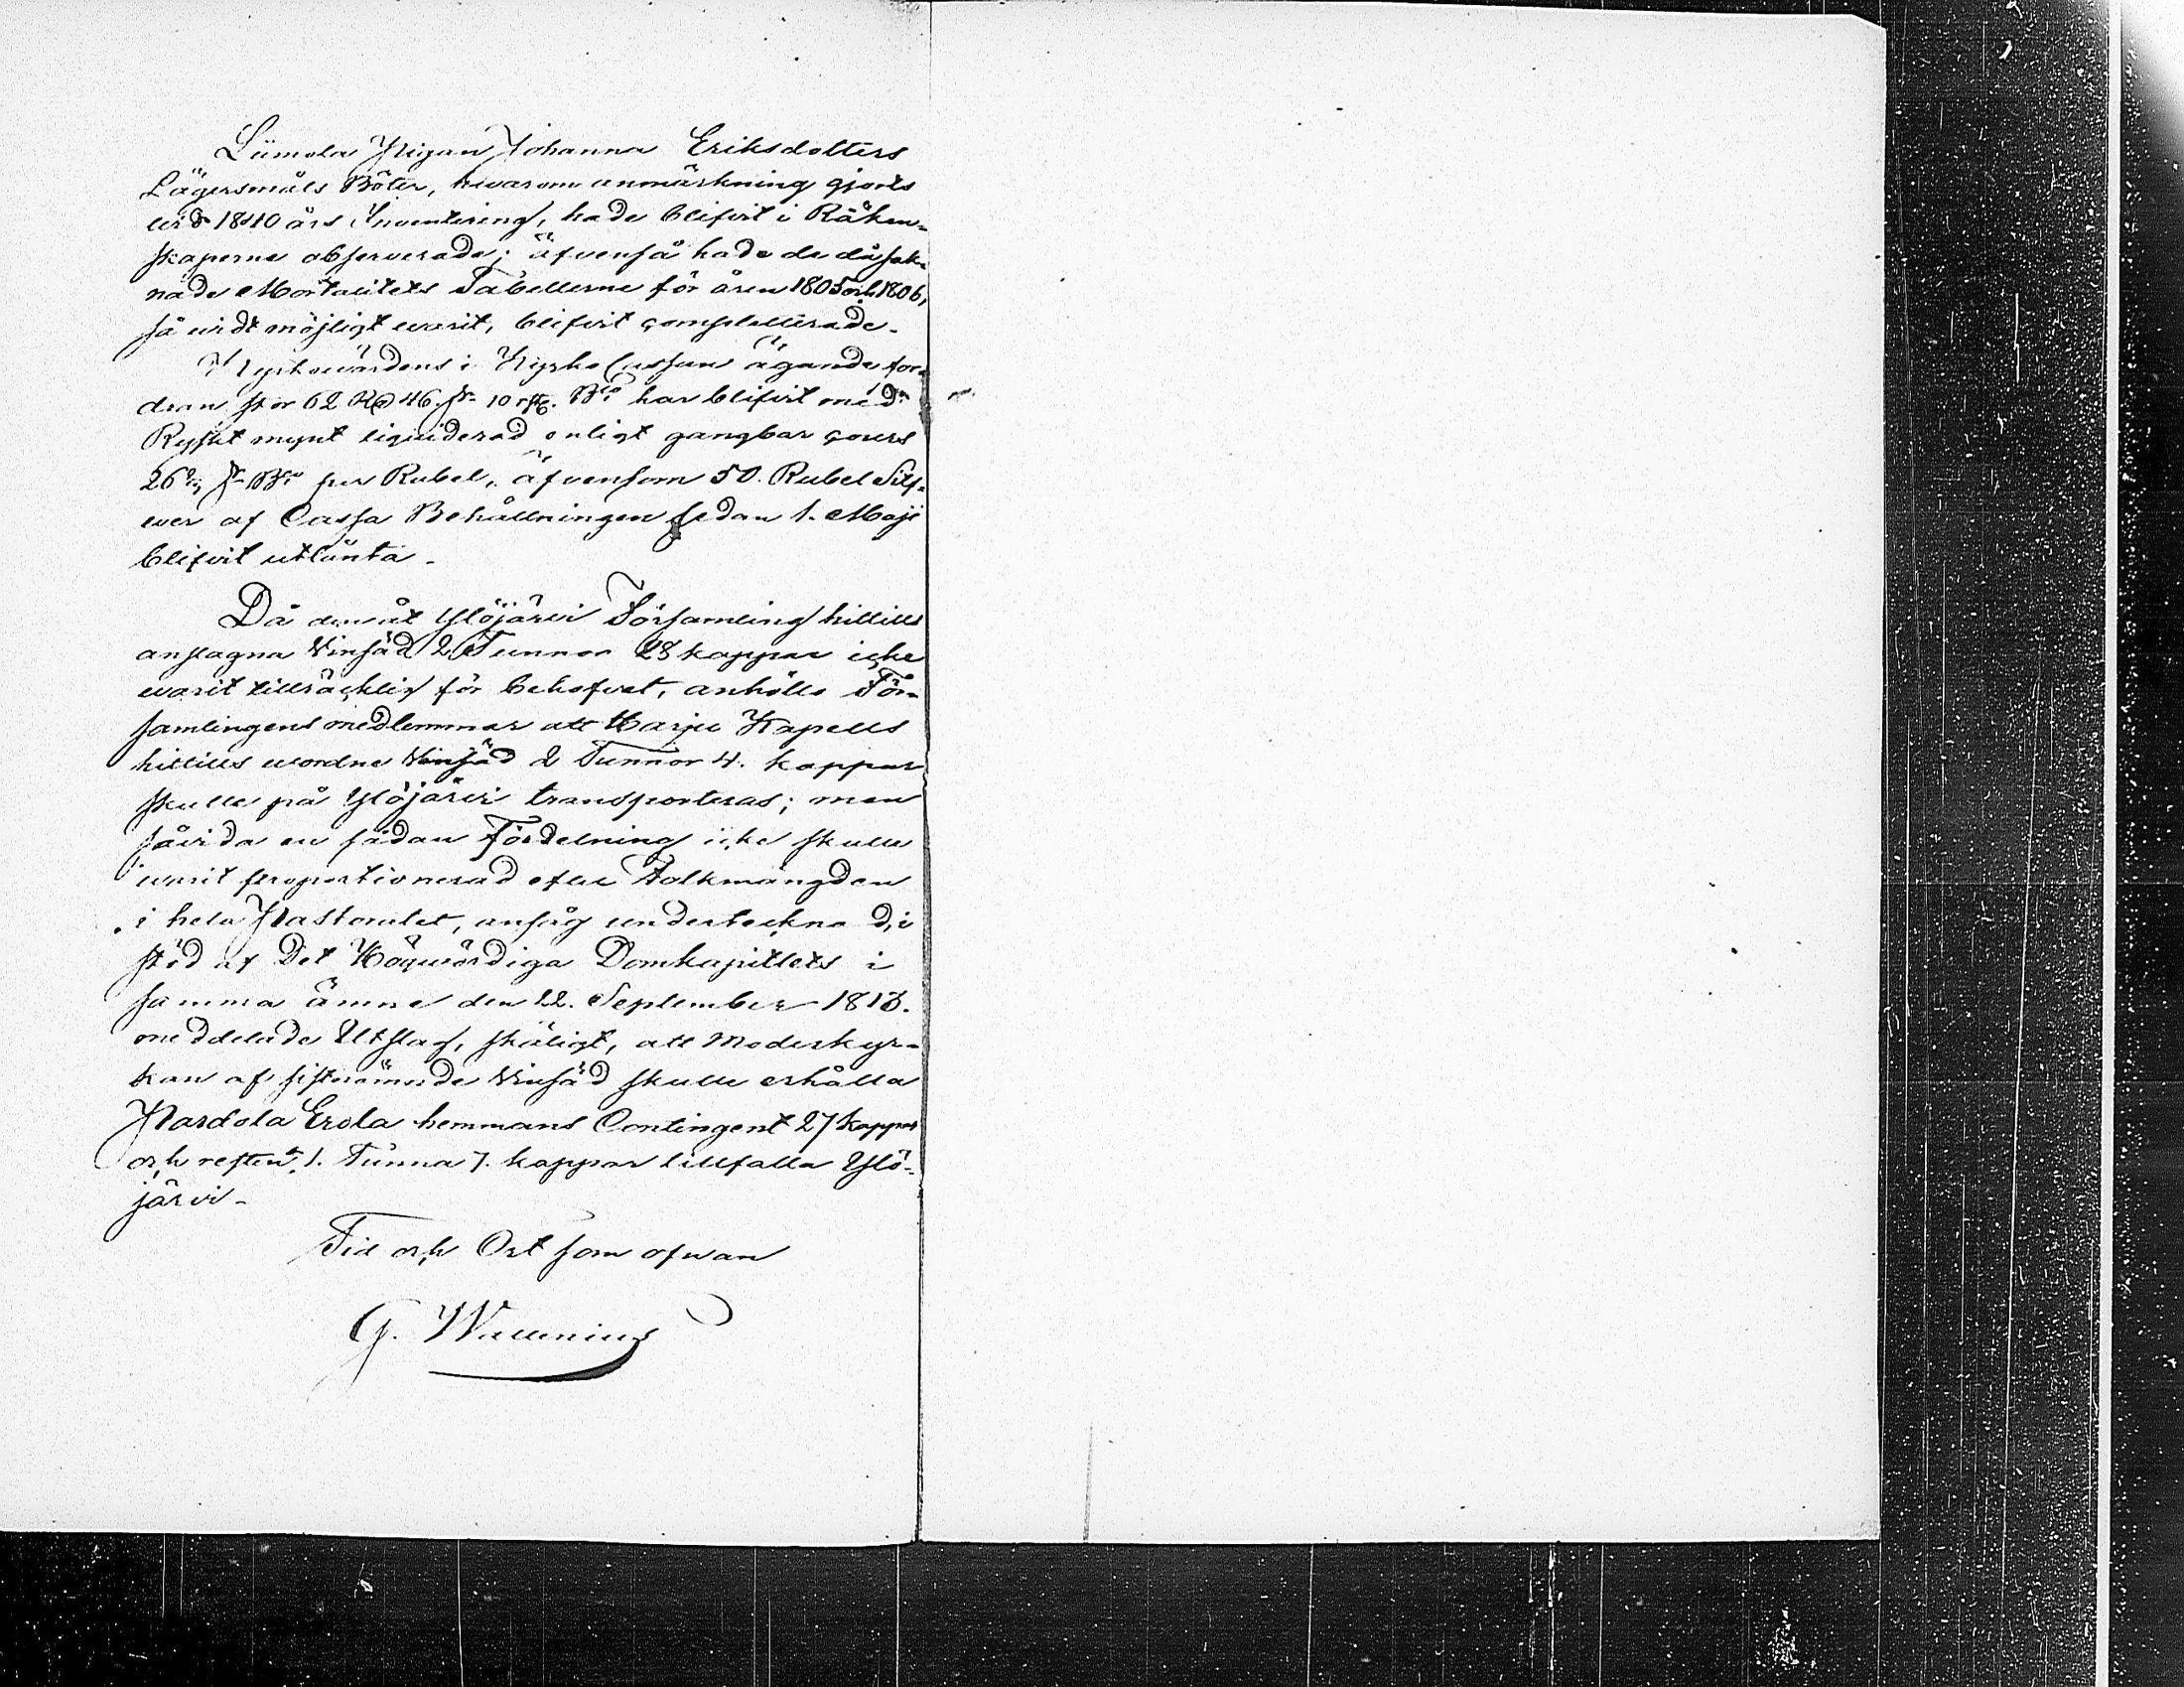 Liimola Pigan Johanna Eriksdotters
Lägersmåls Böter, hwarom anmärkning gjorts
wid 1810 års Inventering, hade blifvit i Räken-
skaperne observerade; äfvenså hade de då sak-
nade Mortalitets Tabellerne för åren 1805 och 1806,
så widt möjligt warit, blifvit completterade.
Kyrkowärdens i Kyrko Cassan ägande for-
dran stor 62 Rd 46 s. 10 rst. Bco har blifvit med
Ryskt mynt liquiderad enligt gangbar cours
26 s. Bco per Rubel, äfvensom 50. Rubel Silf-
wer af Cassa Behållningen sedan 1. Maji
blifvit utlånta.
Då den åt Ylöjärvi Församling hittills
anslagna Vinsäd 2 Tunnor 28 kappar icke
warit tillräcklig för behofvet, anhöllo För-
samlingens medlemmar att Harju Kapells
hittills wordne Vinsäd 2 Tunnor 4. kappar
skulle på Ylöjärvi transporteras; men
såvida en sådan Fördelning icke skulle
warit proportionerad efter Folkmängden
i hela Pastoratet, ansåg undertecknad, i
stöd af Det Högwördiga Domkapitlets i
samma ämne den 22. September 1813.
meddelade Utslag, skäligt, att Moderkyr-
kan af sistnämnde Vinsäd skulle erhålla
Pardola Erola hemmans Contingent 27 kappar
och resten 1. Tunna 7. kappar tillfalla Ylö-
järvi.
Tid och Ort som ofwan
G. Wallenius